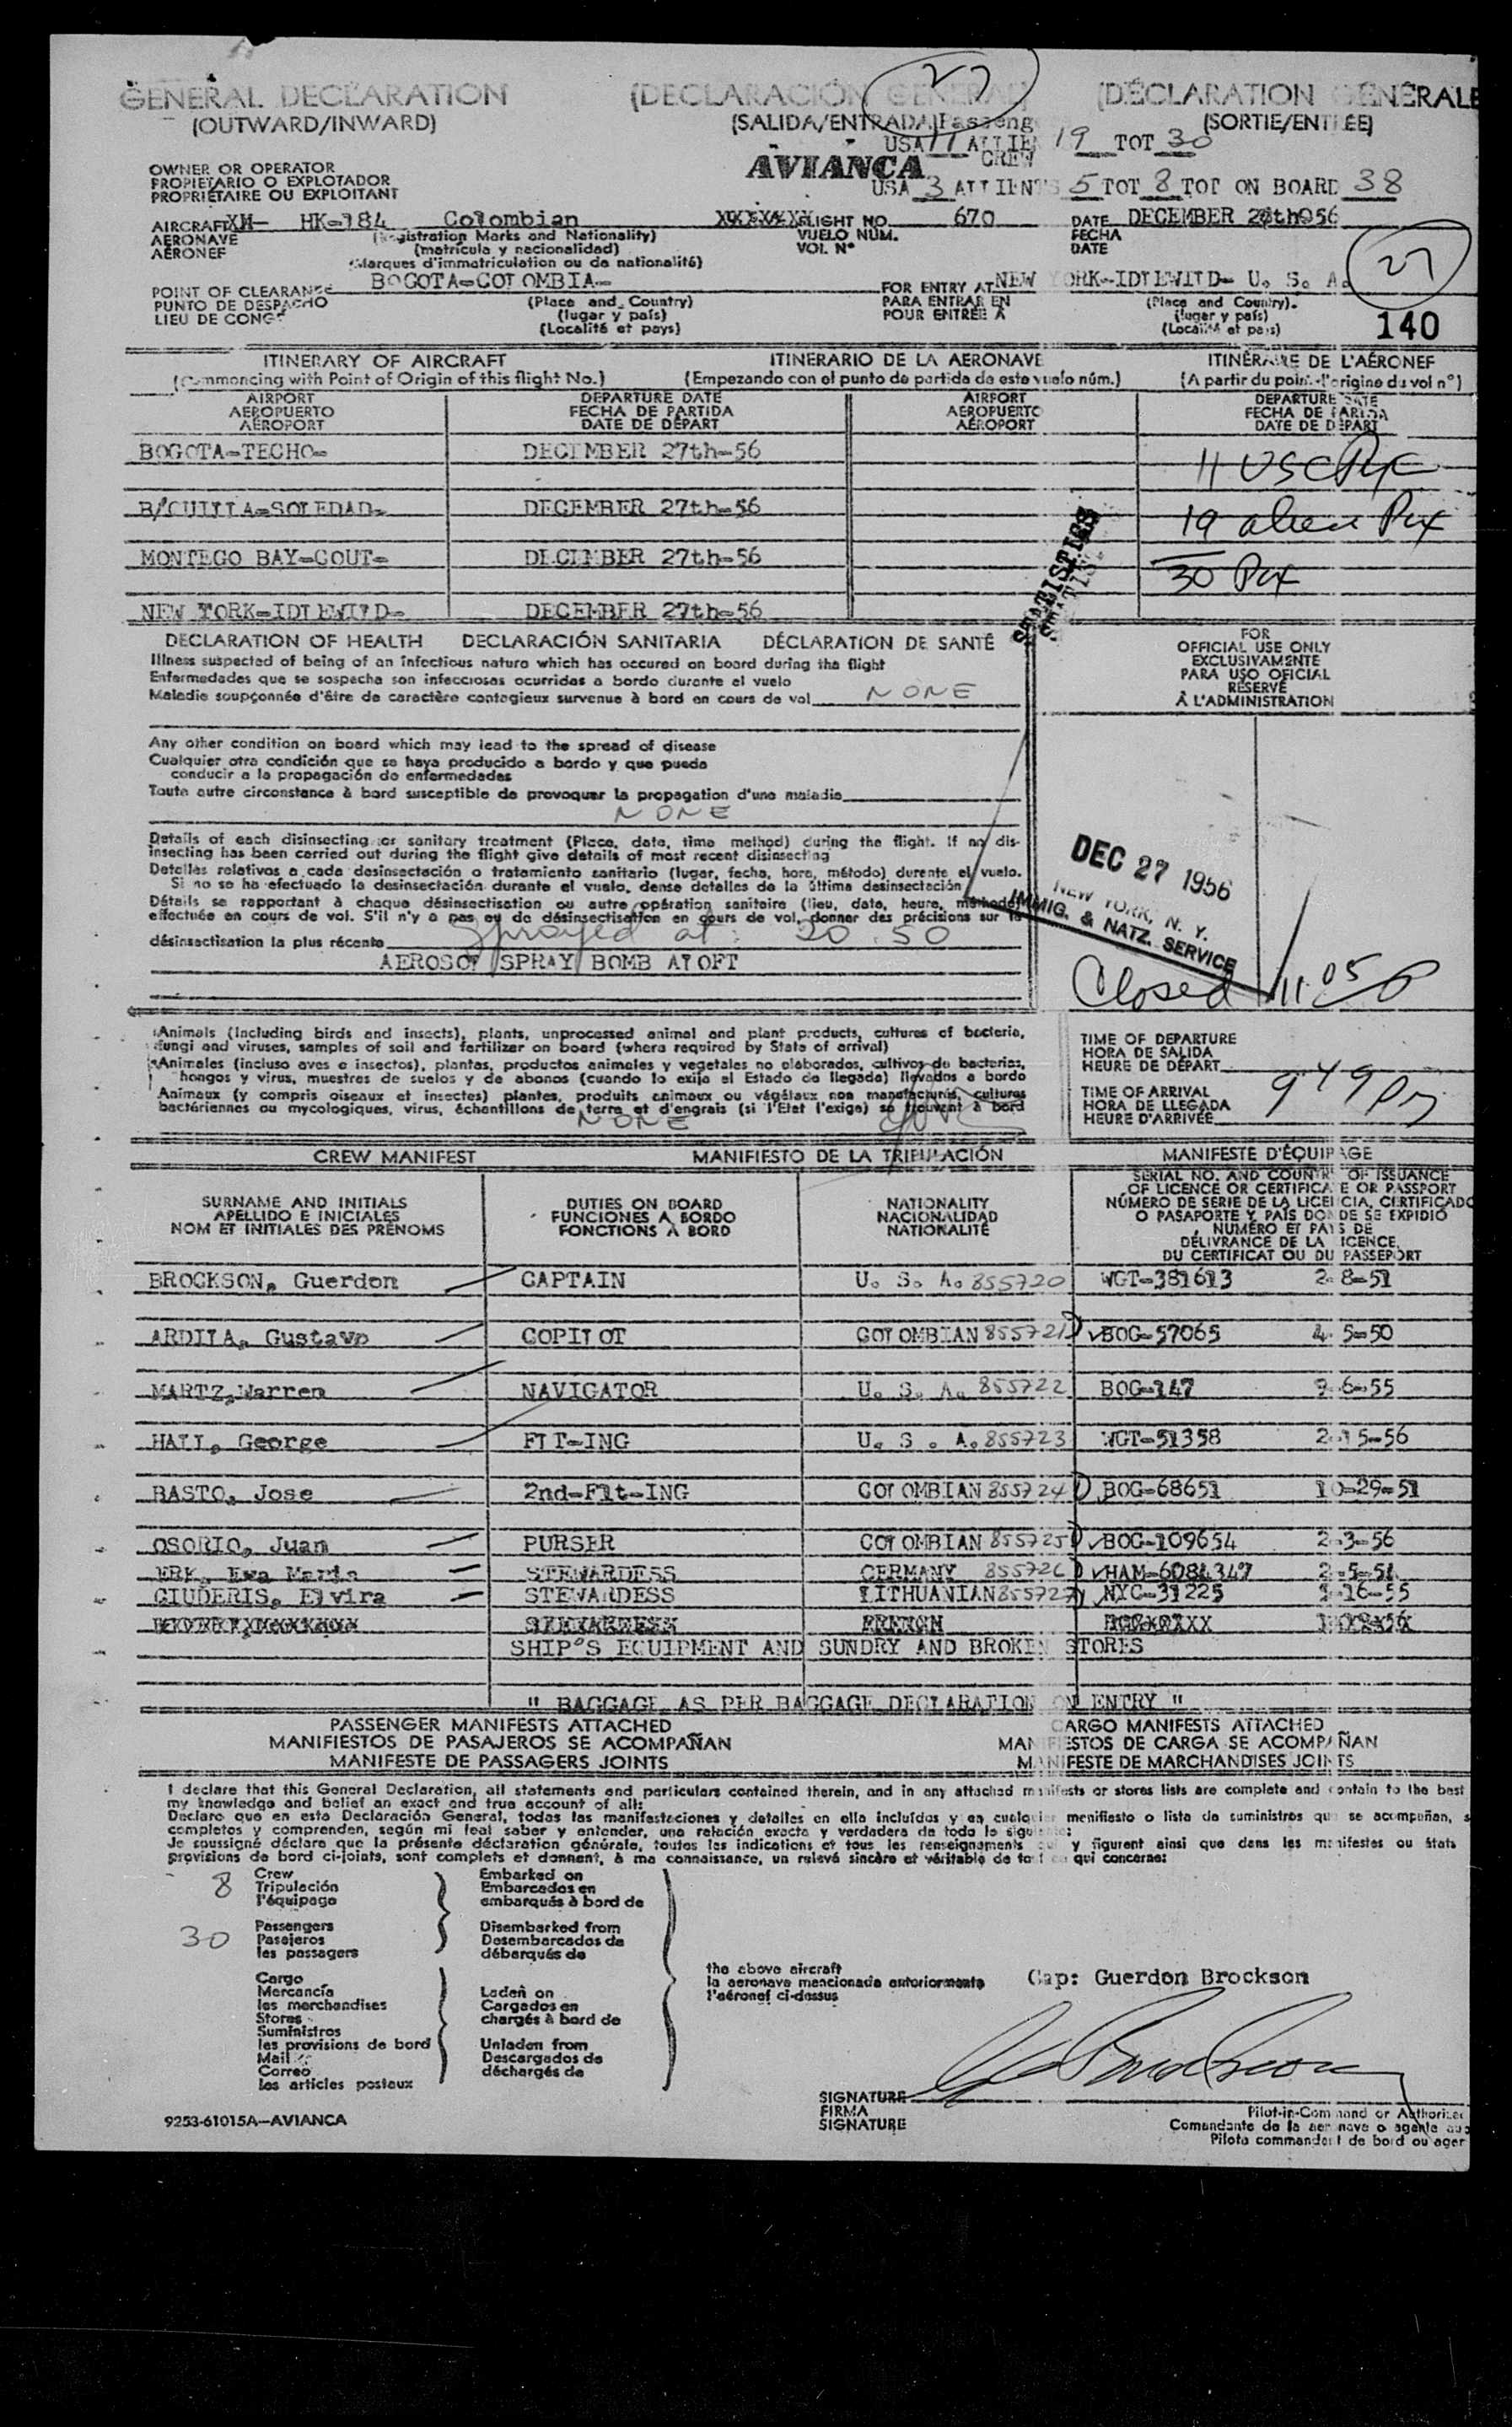 27
GENERAL DECLARATION (DECLARACIÓN GENERAL) (DÉCLARATION GÉNÉRALE
(OUTWARD/INWARD) (SALIDA/ENTRADA) Passeng (SORTIE/ENTRÉE)
USA 11 ALLIEN 19 TOT 30
CREW
OWNER OR OPERATOR
PROPIETARIO O EXPLOTADOR
PROPRIÉTAIRE OU EXPLOITANT
AVIANCA
USA 3 ALLIENTS 5 TOT 8 TOT ON BOARD 38
AIRCRAFT HK-184 Colombian FLIGHT NO. 670 DATE DECEMBER 27th 956
AERONAVE (Registration Marks and Nationality) VUELO NÚM. FECHA
AÉRONEF (matrícula y nacionalidad) VOL N° DATE
(Marques d'immatriculation ou de nationalité)
27
POINT OF CLEARANCE BOGOTA-COLOMBIA- FOR ENTRY AT NEW YORK-IDLEWILD- U. S. A.
PUNTO DE DESPACHO (Place and Country) PARA ENTRAR EN (Place and Country).
LIEU DE CONGÉ (lugar y país) POUR ENTRÉE À (lugar y país)
(Localité et pays) (Localité et pays)
140
ITINERARY OF AIRCRAFT ITINERARIO DE LA AERONAVE ITINÉRAIRE DE L'AÉRONEF
(Commencing with Point of Origin of this flight No.) (Empezando con el punto de partida de este vuelo núm.) (A partir du point d'origine du vol n°)
AIRPORT DEPARTURE DATE AIRPORT DEPARTURE DATE
AEROPUERTO FECHA DE PARTIDA AEROPUERTO FECHA DE PARTIDA
AÉROPORT DATE DE DÉPART AÉROPORT DATE DE DÉPART
BOGOTA-TECHO- DECEMBER 27th-56
11 USC
B/QUILLA-SOLEDAD- DECEMBER 27th-56
19 alien Pax
MONTEGO BAY-GOUT- DECEMBER 27th-56
30 Pax
NEW YORK-IDLEWILD- DECEMBER 27th-56
STATISTICS
DECLARATION OF HEALTH DECLARACIÓN SANITARIA DÉCLARATION DE SANTÉ
FOR
OFFICIAL USE ONLY
EXCLUSIVAMENTE
PARA USO OFICIAL
RÉSERVÉ
À L'ADMINISTRATION
Illness suspected of being of an infectious nature which has occured on board during the flight
Enfermedades que se sospecha son infecciosas ocurridas a bordo durante el vuelo
Maladie soupçonnée d'être de caractère contagieux survenue à bord en cours de vol NONE
Any other condition on board which may lead to the spread of disease
Cualquier otra condición que se haya producido a bordo y que pueda
conducir a la propagación de enfermedades
Toute autre circonstance à bord susceptible de provoquer la propagation d'une maladie
NONE
Details of each disinsecting or sanitary treatment (Place, date, time method) during the flight. If no dis-
insecting has been carried out during the flight give details of most recent disinsecting
Detalles relativos a cada desinsectación o tratamiento sanitario (lugar, fecha, hora, método) durente el vuelo.
Si no se ha efectuado la desinsectación durante el vuelo, dense detalles de la última desinsectación
Détails se rapportant à chaque désinsectisation ou autre opération sanitaire (lieu, date, heure, méthode)
effectuée en cours de vol. S'il n'y a pas eu de désinsectisation en cours de vol, donner des précisions sur la
désinsectisation la plus récente Sprayed at: 20.50
AEROSOL SPRAY BOMB ALOFT
DEC 27 1956
NEW YORK, N. Y.
IMMIG. & NATZ. SERVICE
Closed 11 05 P
Animals (Including birds and insects), plants, unprocessed animal and plant products, cultures of bacteria,
fungi and viruses, samples of soil and fertilizer on board (where required by State of arrival)
Animales (incluso aves e insectos), plantas, productos animales y vegetales no elaborados, cultivos de bacterias,
hongos y virus, muestras de suelos y de abonos (cuando lo exija el Estado de llegada) llevados a bordo
Animaux (y compris oiseaux et insectes) plantes, produits animaux ou végétaux non manufacturés, cultures
bactériennes ou mycologiques, virus, échantillons de terre et d'engrais (si l'Etat l'exige) se trouvant à bord
NONE
TIME OF DEPARTURE
HORA DE SALIDA
HEURE DE DÉPART
TIME OF ARRIVAL
HORA DE LLEGADA
HEURE D'ARRIVÉE
9 49 Pm
CREW MANIFEST MANIFIESTO DE LA TRIPULACIÓN MANIFESTE D'ÉQUIPAGE
SURNAME AND INITIALS
APELLIDO E INICIALES
NOM ET INITIALES DES PRÉNOMS
DUTIES ON BOARD
FUNCIONES A BORDO
FONCTIONS À BORD
NATIONALITY
NACIONALIDAD
NATIONALITÉ
SERIAL NO. AND COUNTRY OF ISSUANCE
OF LICENCE OR CERTIFICATE OR PASSPORT
NÚMERO DE SERIE DE LA LICENCIA, CERTIFICADO
O PASAPORTE Y PAÍS DONDE SE EXPIDIÓ
NUMÉRO ET PAYS DE
DÉLIVRANCE DE LA LICENCE,
DU CERTIFICAT OU DU PASSEPORT
BROCKSON, Guerdon CAPTAIN U. S. A. 855720 WGT-381613 2-8-51
ARDILA, Gustavo COPILOT COLOMBIAN 855721 BOG-57065 4-5-50
MARTZ, Warren NAVIGATOR U. S. A. 855722 BOG-147 9-6-55
HALL, George FLT-ING U. S. A. 855723 WGT-51358 2-15-56
BASTO, Jose 2nd-Flt-ING COLOMBIAN 855724 BOG-68651 10-29-51
OSORIO, Juan PURSER COLOMBIAN 855725 BOG-109654 2-3-56
ERK, Ewa Maria STEWARDESS GERMANY 855726 HAM-6084347 2-5-54
GIUDERIS, Elvira STEWARDESS LITHUANIAN 855727 NYC-31225 1-16-55
SHIP'S EQUIPMENT AND SUNDRY AND BROKEN STORES
" BAGGAGE AS PER BAGGAGE DECLARATION ON ENTRY "
PASSENGER MANIFESTS ATTACHED CARGO MANIFESTS ATTACHED
MANIFIESTOS DE PASAJEROS SE ACOMPAÑAN MANIFIESTOS DE CARGA SE ACOMPAÑAN
MANIFESTE DE PASSAGERS JOINTS MANIFESTE DE MARCHANDISES JOINTS
I declare that this General Declaration, all statements and particulars contained therein, and in any attached manifests or stores lists are complete and contain to the best
my knowledge and belief an exact and true account of all:
Declaro que en esta Declaración General, todas las manifestaciones y detalles en ella incluídas y en cualquier menifiesto o lista de suministros que se acompañan, s
completos y comprenden, según mi leal saber y entender, una relación exacta y verdadera de todo lo siguiente:
Je soussigné déclare que la présente déclaration générale, toutes les indications et tous les renseignements qui y figurent ainsi que dans les manifestes ou états
provisions de bord ci-joints, sont complets et donnent, à ma connaissance, un relevé sincère et véritable de tout ce qui concerne:
8 Crew
Tripulación
l'équipage
Embarked on
Embarcados en
embarqués à bord de
30 Passengers
Pasajeros
les passagers
Disembarked from
Desembarcados de
débarqués de
Cargo
Mercancía
les merchandises
Stores
Suministros
les provisions de bord
Mail
Correo
les articles postaux
Laden on
Cargados en
chargés à bord de
Unladen from
Descargados de
déchargés de
the above aircraft
la aeronave mencionada anteriormente
l'aéronef ci-dessus
Cap: Guerdon Brockson
G Brockson
SIGNATURE
FIRMA
SIGNATURE
Pilot-in-Command or Authorized
Comandante de la aeronave o agente au
Pilote commandant de bord ou ager
9253-61015A—AVIANCA